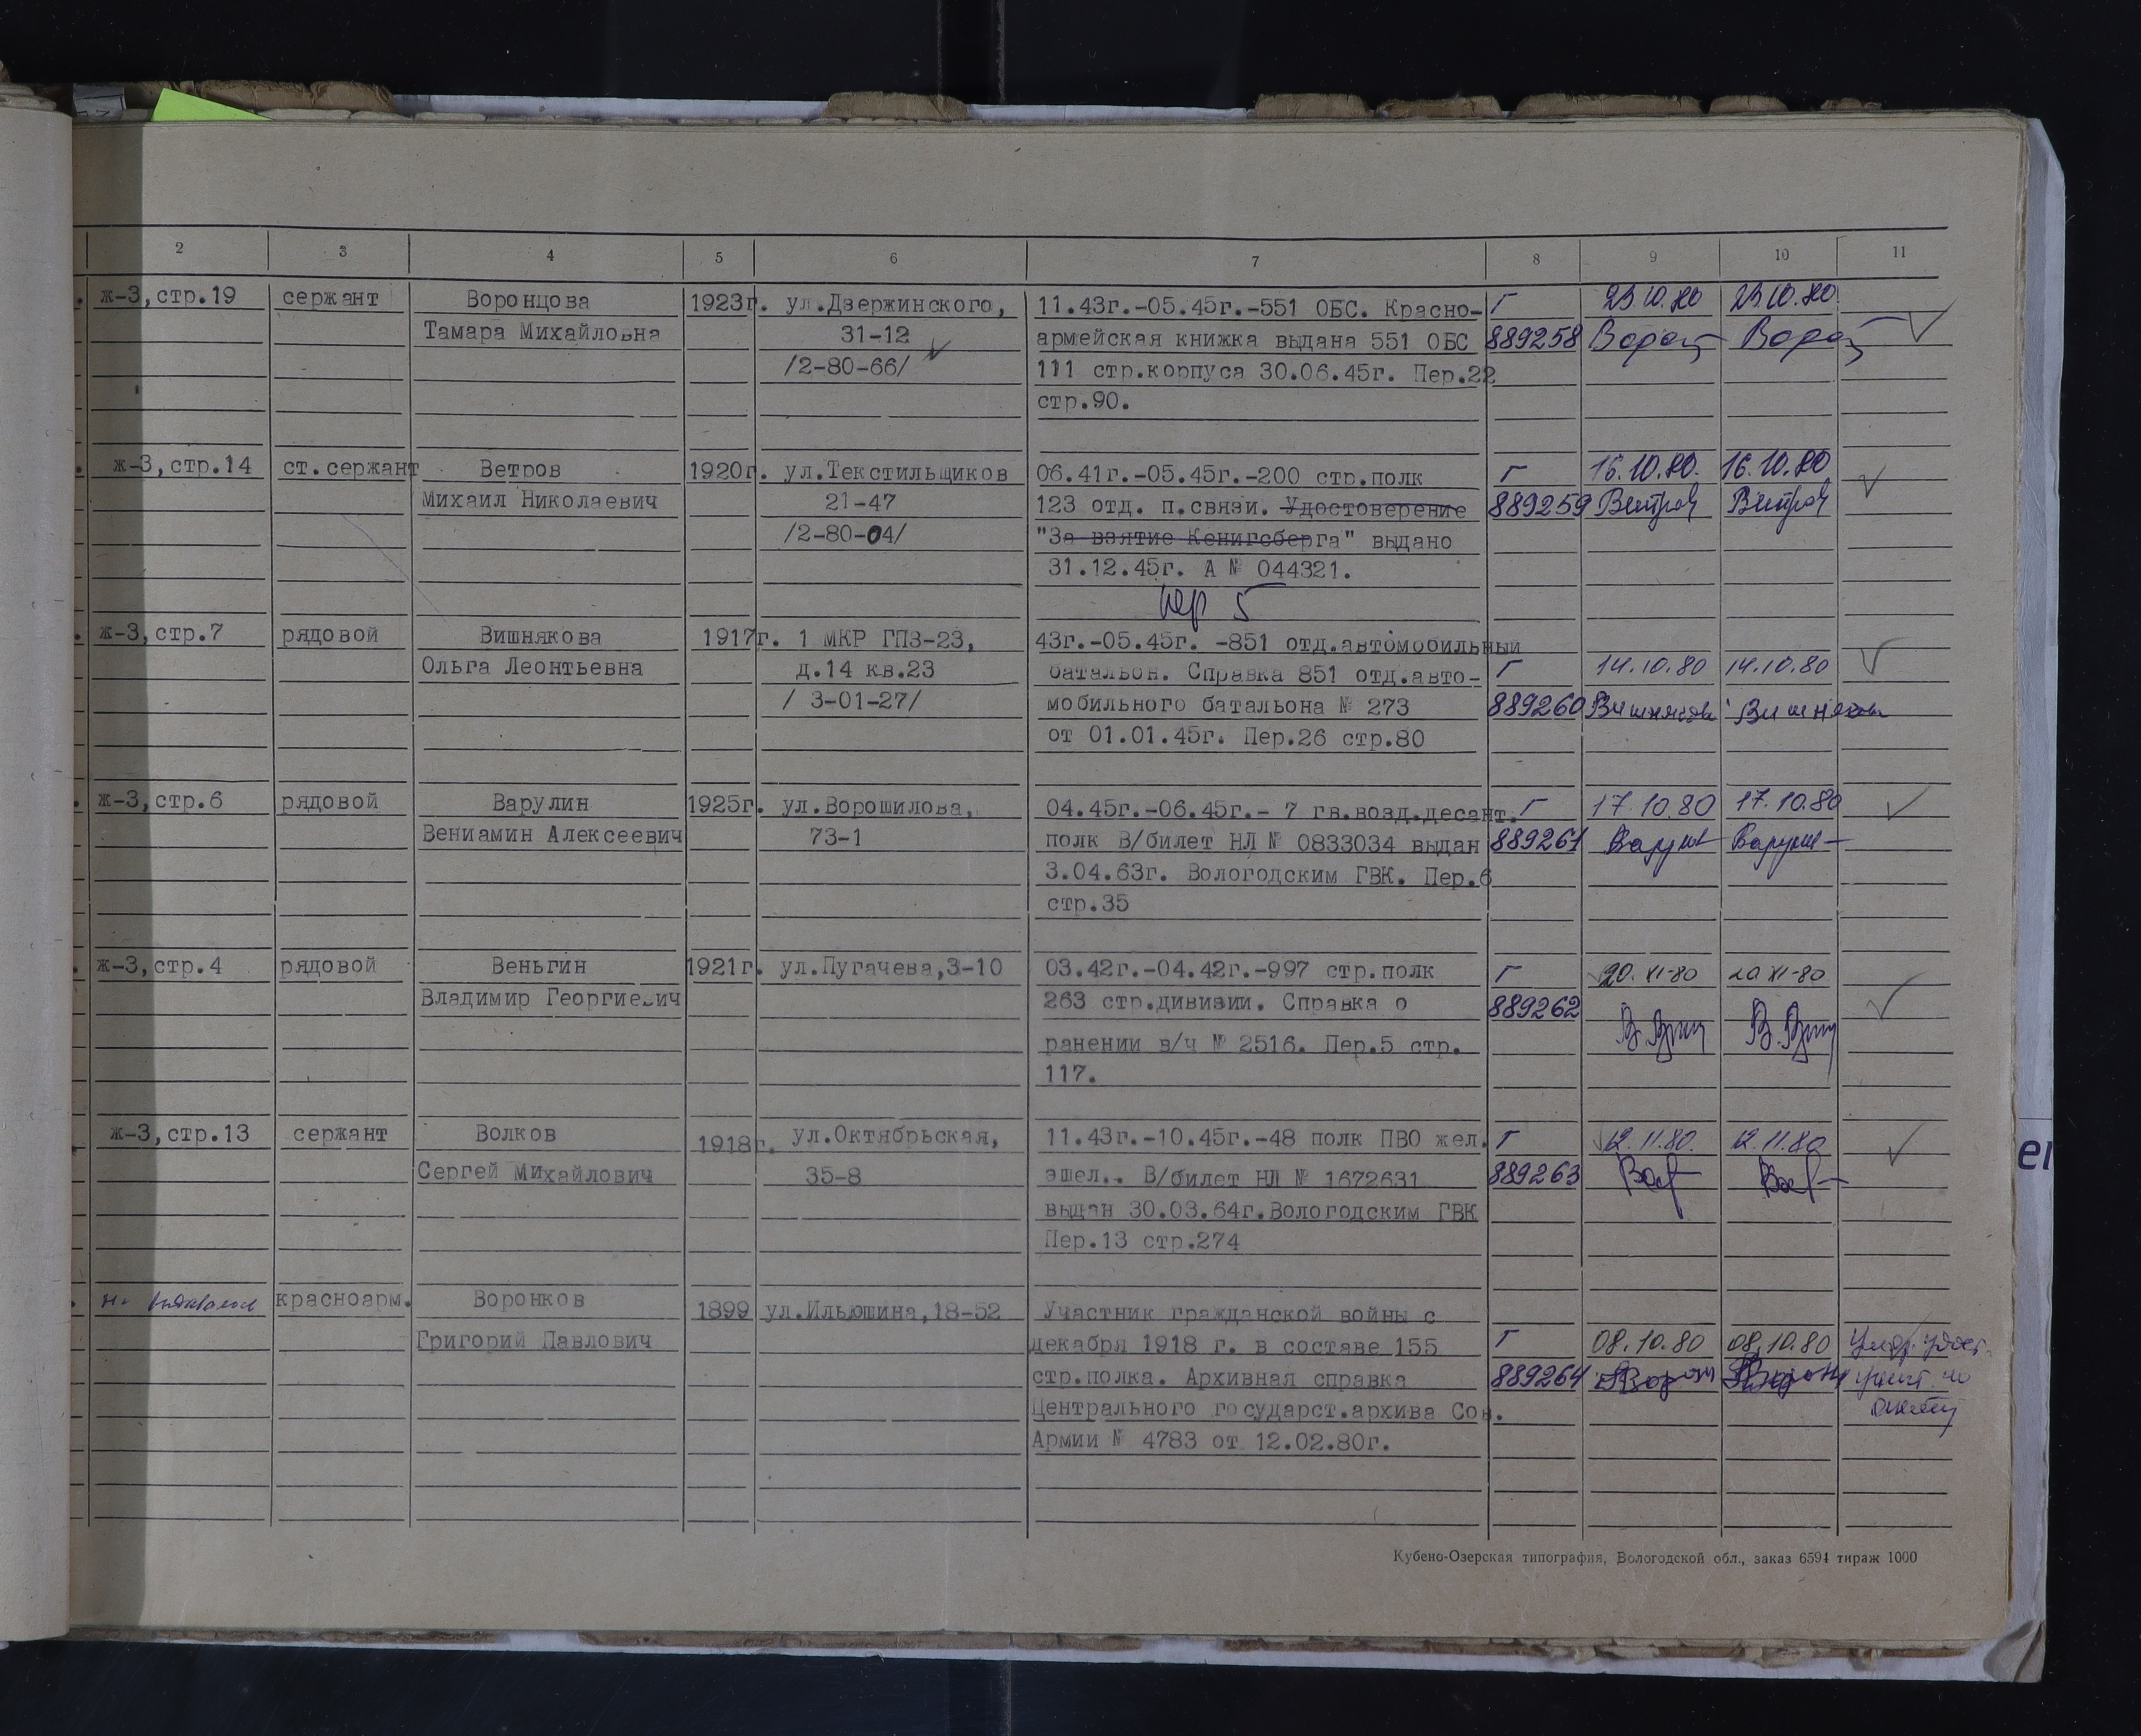 2 3 4 5 6 7 8 9 10 11
ж-3,стр.19 сержант Воронцова 1923г. ул.Дзержинского, 11.43г.-05.45г.-551 ОБС. Красно- Г 23.10.80 23.10.80
Тамара Михайловна 31-12 армейская книжка выдана 551 ОБС 889258
/2-80-66/ 111 стр.корпуса 30.06.45г. Пер.22
стр.90.
ж-3,стр.14 ст.сержант Ветров 1920г. ул.Текстильщиков 06.41г.-05.45г.-200 стр.полк Г 16.10.80. 16.10.80
Михаил Николаевич 21-47 123 отд. п.связи. Удостоверение 889259 Ветров Ветров
/2-80-04/ "За взятие Кенигсберга" выдано
31.12.45г. А № 044321.
пер 5
ж-3,стр.7 рядовой Вишнякова 1917г. 1 МКР ГПЗ-23, 43г.-05.45г. -851 отд.автомобильный
Ольга Леонтьевна д.14 кв.23 батальон. Справка 851 отд.авто- Г 14.10.80 14.10.80
/ 3-01-27/ мобильного батальона № 273 889260 Вишнякова Вишнякова
от 01.01.45г. Пер.26 стр.80
ж-3,стр.6 рядовой Варулин 1925г. ул.Ворошилова, 04.45г.-06.45г.- 7 гв.возд.десант. Г 17.10.80 17.10.80
Вениамин Алексеевич 73-1 полк В/билет НЛ № 0833034 выдан 889261
3.04.63г. Вологодским ГВК. Пер.6
стр.35
ж-3,стр.4 рядовой Веньгин 1921г. ул.Пугачева,3-10 03.42г.-04.42г.-997 стр.полк Г 20.XI-80 20 XI-80
Владимир Георгиевич 263 стр.дивизии. Справка о 889262
ранении в/ч № 2516. Пер.5 стр.
117.
ж-3,стр.13 сержант Волков 1918г. ул.Октябрьская, 11.43г.-10.45г.-48 полк ПВО жел. Г 12.11.80. 12.11.80
Сергей Михайлович 35-8 эшел.. В/билет НЛ № 1672631 889263
выдан 30.03.64г.Вологодским ГВК
Пер.13 стр.274
красноарм. Воронков 1899 ул.Ильюшина,18-52 Участник гражданской войны с
Григорий Павлович декабря 1918 г. в составе 155 Г 08.10.80 08.10.80
стр.полка. Архивная справка 889264
Центрального государст.архива Сов.
Армии № 4783 от 12.02.80г.
Кубено-Озерская типография, Вологодской обл., заказ 6594 тираж 1000